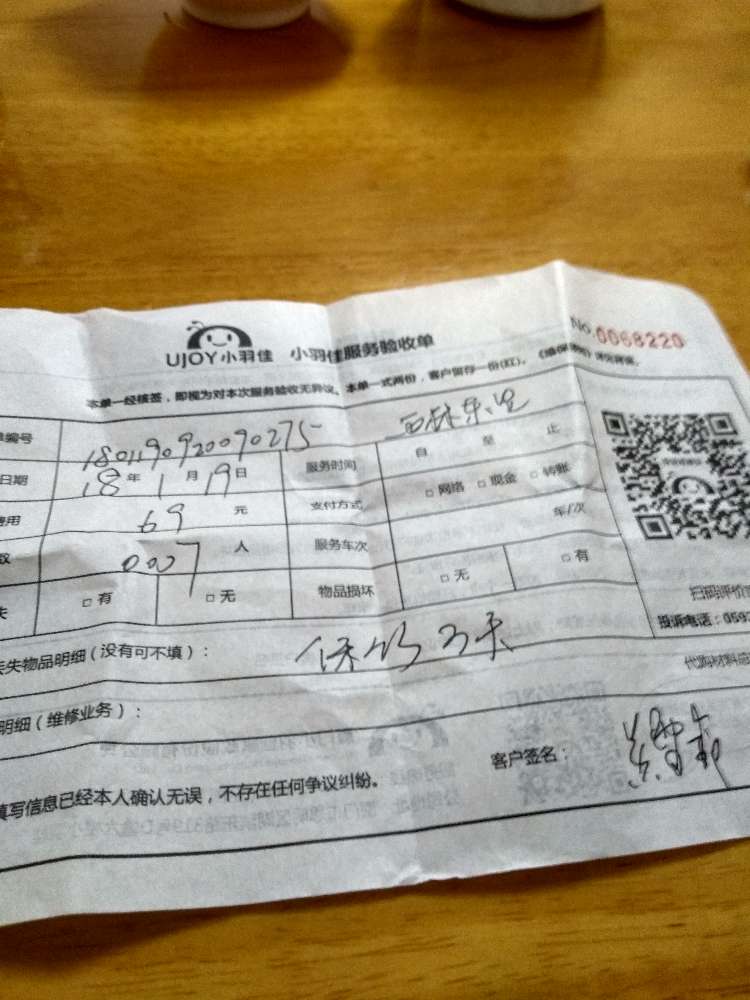 No.0068220
UJOY小羽佳 小羽佳服务验收单
本单一经核签，即视为对本次服务验收无异议。本单一式两份，客户留存一份(红)。
单编号 180119092090275
日期 18年1月19日 服务时间 自 至 止
费用 69元 支付方式 □网络 □现金 □转账
数 0007人 服务车次 年/次
失 □有 □无 物品损坏 □无 □有
扫码评价
投诉电话：059
丢失物品明细(没有可不填)： 3天
代购材料
明细(维修业务)：
客户签名：
填写信息已经本人确认无误，不存在任何争议纠纷。